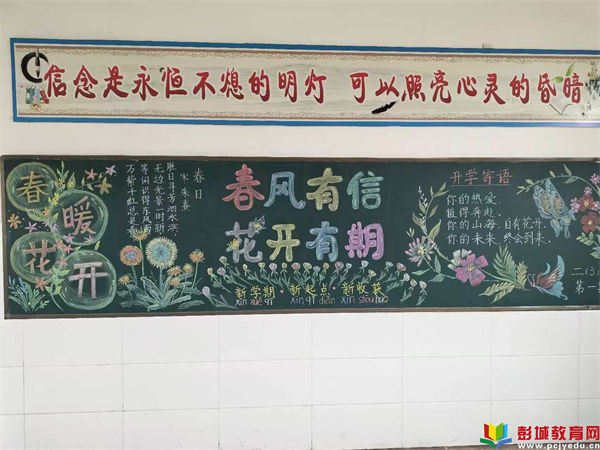 信念是永恒不熄的明灯 可以照亮心灵的昏暗
春
暖
花
开
春日
宋 朱熹
胜日寻芳泗水滨
无边光景一时新
等闲识得东风面
万紫千红总是春
春风有信
花开有期
新学期·新起点·新收获
xīn xué qī xīn qǐ diǎn xīn shōu huò
开学寄语
你的热爱,
值得奔赴,
你的山海,自有花开,
你的未来,终会到来.
二(3)
第一
彭城教育网
www.pcjyedu.cn